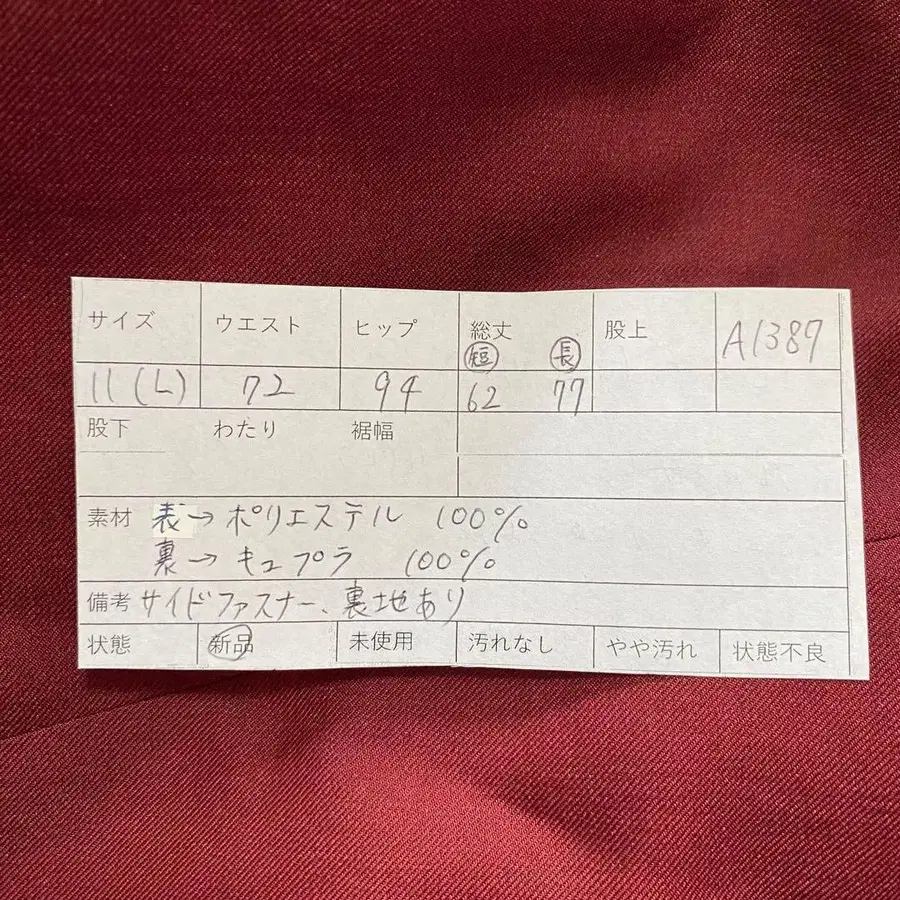 サイズ ウエスト ヒップ 総丈 股上 A1387
短 長
11(L) 72 94 62 77
股下 わたり 裾幅
素材 表→ポリエステル 100%
裏→キュプラ 100%
備考 サイドファスナー、裏地あり
状態 新品 未使用 汚れなし やや汚れ 状態不良